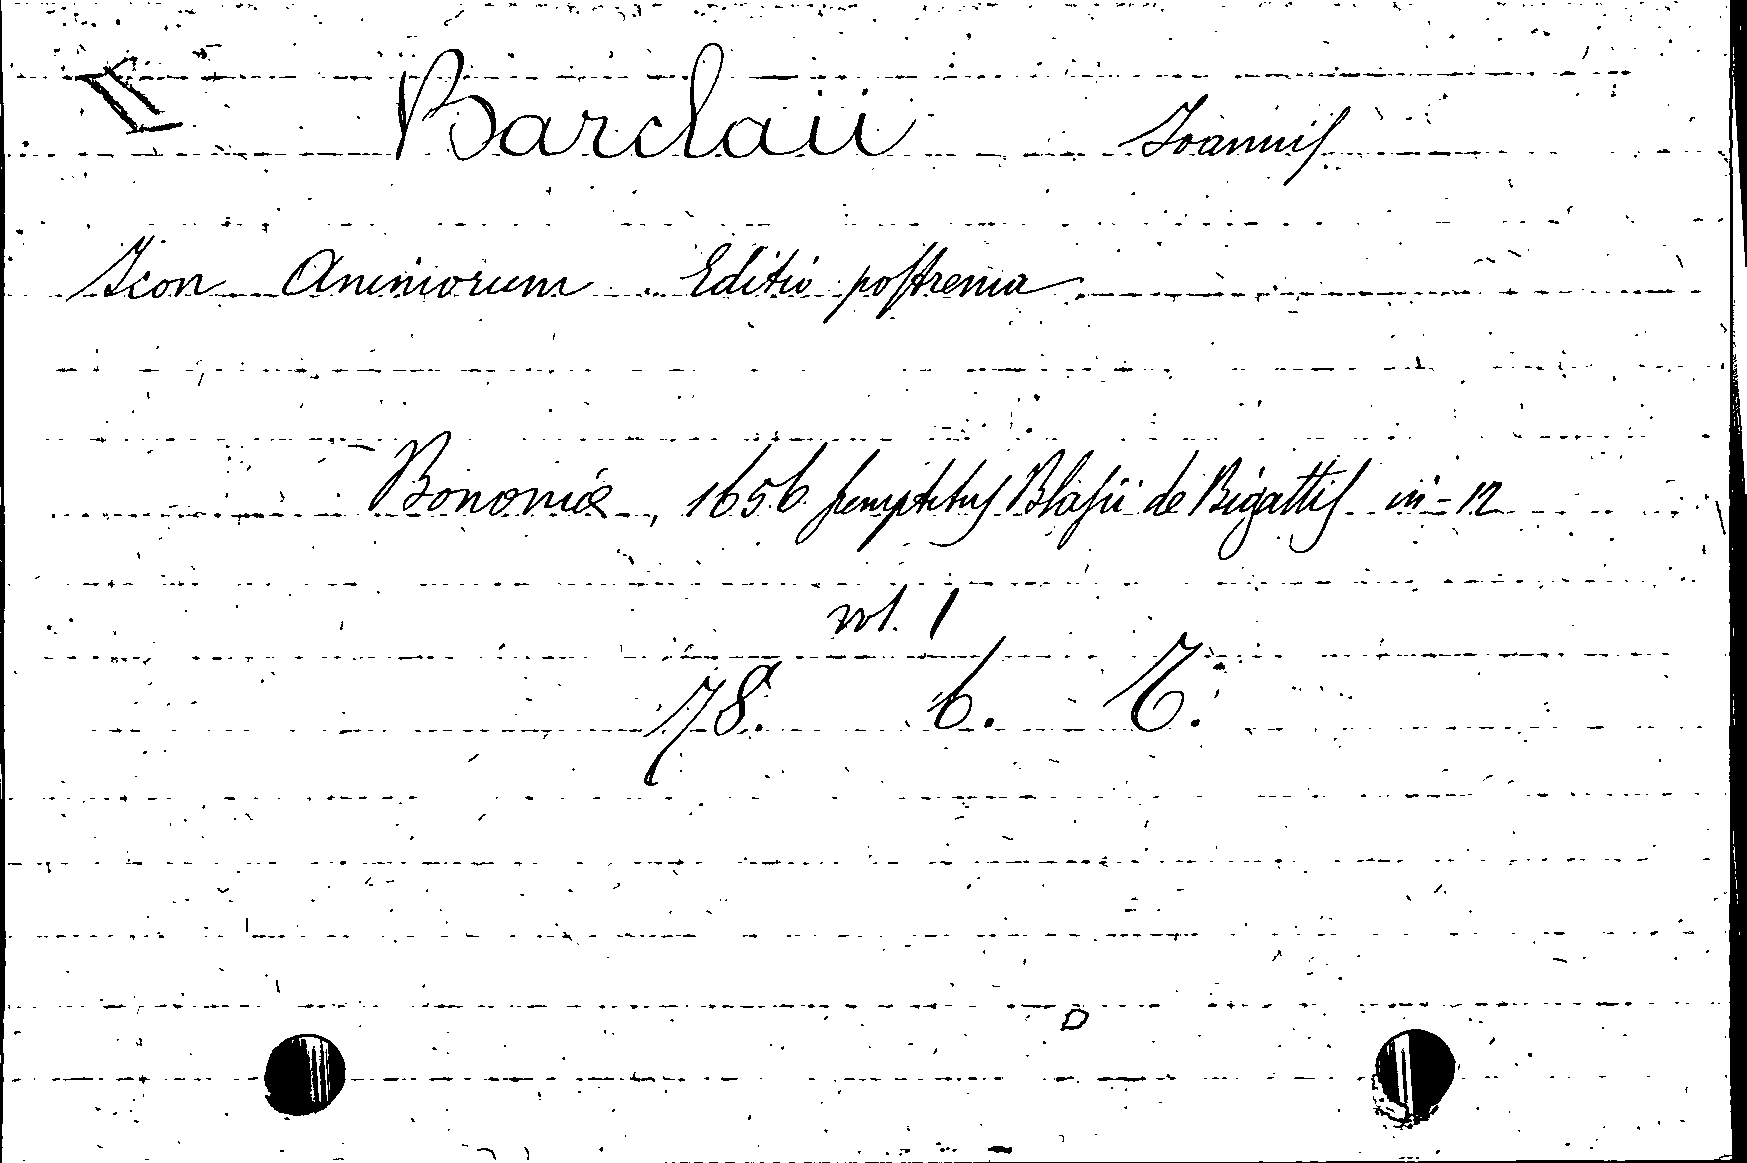 II
Barclaii Joannis
Icon Animorum. Editio postrema
Bononiæ, 1656 sumptibus Blasii de Bigattis in-12
vol. 1
78. 6.